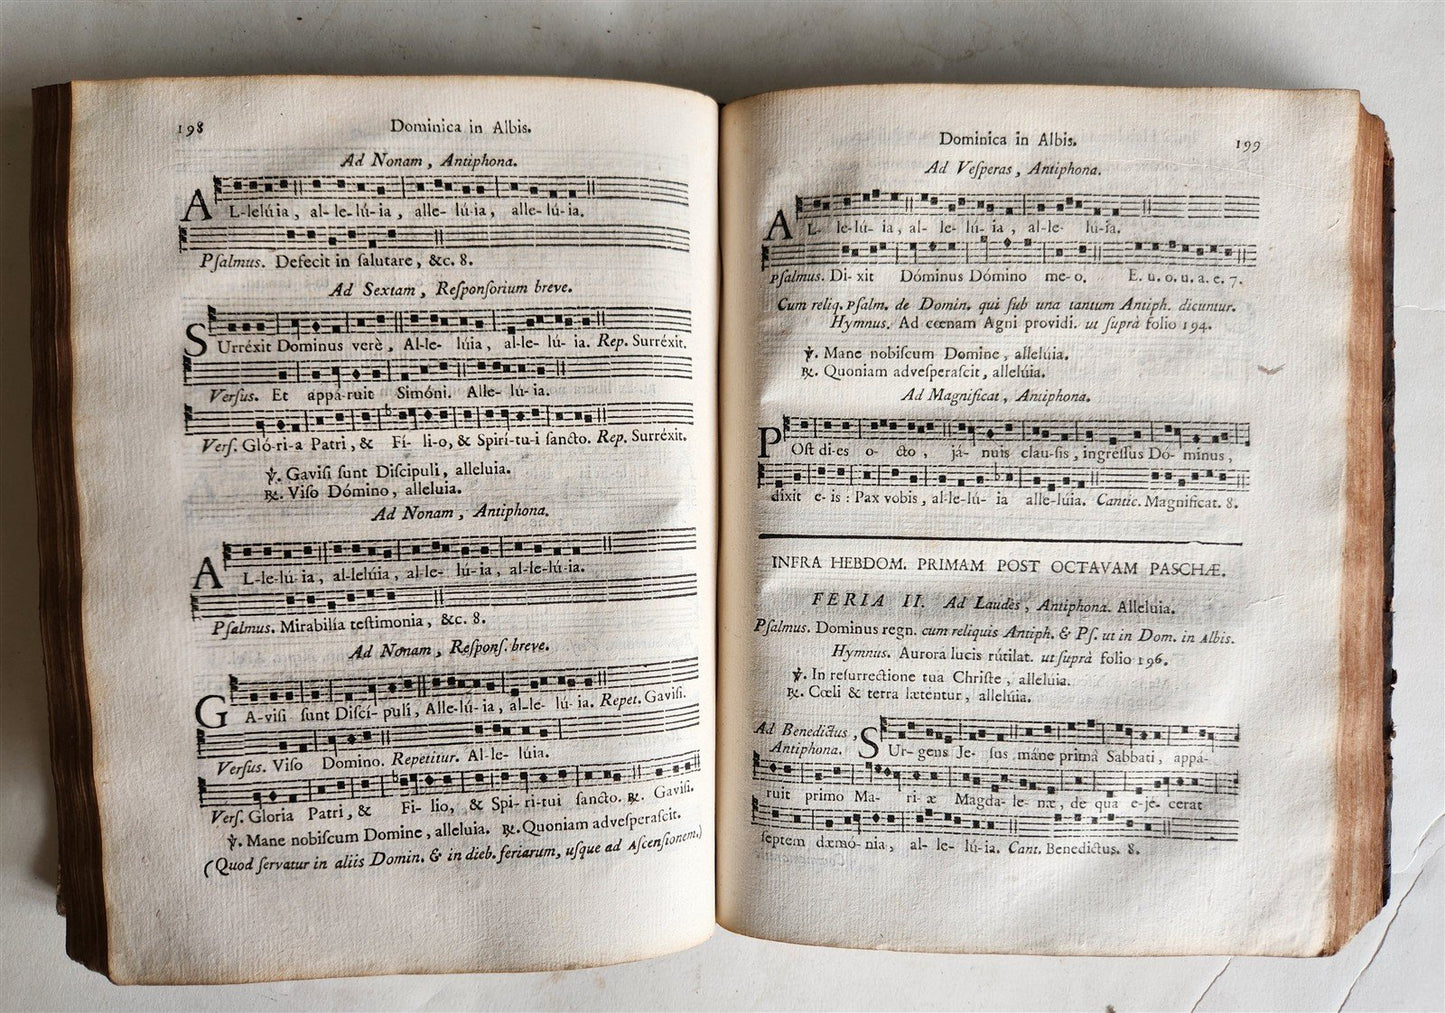 198
Dominica in Albis.
Ad Nonam, Antiphona.
AL-lelúia, al-le-lú-ia, alle-lú-ia, alle-lú-ia.
Pſalmus. Defecit in ſalutare, &c. 8.
Ad Sextam, Reſponſorium breve.
SUrréxit Dominus verè, Al-le-lúia, al-le-lú-ia. Rep. Surréxit.
Verſus. Et appá-ruit Simóni. Alle-lú-ia.
Verſ. Gló-ri-a Patri, & Fí-li-o, & Spirí-tu-i ſancto. Rep. Surréxit.
℣. Gaviſi ſunt Diſcipuli, alleluia.
℟. Viſo Dómino, alleluia.
Ad Nonam, Antiphona.
AL-le-lú-ia, al-lelúia, al-le-lú-ia, al-le-lú-ia.
Pſalmus. Mirabilia teſtimonia, &c. 8.
Ad Nonam, Reſponſ. breve.
GA-viſi ſunt Diſcí-puli, Alle-lú-ia, al-le-lú-ia. Repet. Gaviſi.
Verſus. Viſo Domino. Repetitur. Al-le-lúia.
Verſ. Gloria Patri, & Fi-lio, & Spi-ri-tui ſancto. ℟. Gaviſi.
℣. Mane nobiſcum Domine, alleluia. ℟. Quoniam adveſperaſcit.
(Quod ſervatur in aliis Domin. & in dieb. feriarum, uſque ad Aſcenſionem.)
Dominica in Albis.
199
Ad Veſperas, Antiphona.
AL-le-lú-ia, al-le-lú-ia, al-le-lú-ia.
Pſalmus. Di-xit Dóminus Dómino me-o. E. u. o. u. a. e. 7.
Cum reliq. Pſalm. de Domin. qui ſub una tantum Antiph. dicuntur.
Hymnus. Ad cœnam Agni providi. ut ſuprà folio 194.
℣. Mane nobiſcum Domine, allelúia.
℟. Quoniam adveſperaſcit, allelúia.
Ad Magnificat, Antiphona.
POſt di-es o-cto, já-nuis clau-ſis, ingreſſus Dó-minus,
dixit e-is: Pax vobis, al-le-lú-ia alle-lúia. Cantic. Magnificat. 8.
INFRA HEBDOM. PRIMAM POST OCTAVAM PASCHÆ.
FERIA II. Ad Laudes, Antiphona. Alleluia.
Pſalmus. Dominus regn. cum reliquis Antiph. & Pſ. ut in Dom. in Albis.
Hymnus. Aurora lucis rútilat. ut ſuprà folio 196.
℣. In reſurrectione tua Chriſte, alleluia.
℟. Cœli & terra lætentur, alleluia.
Ad Benedictus, Antiphona. SUr-gens Je-ſus máne primâ Sabbati, appá-
ruit primo Ma-ri-æ Magda-le-næ, de qua e-jé-cerat
ſeptem dæmó-nia, al-le-lú-ia. Cant. Benedictus. 8.